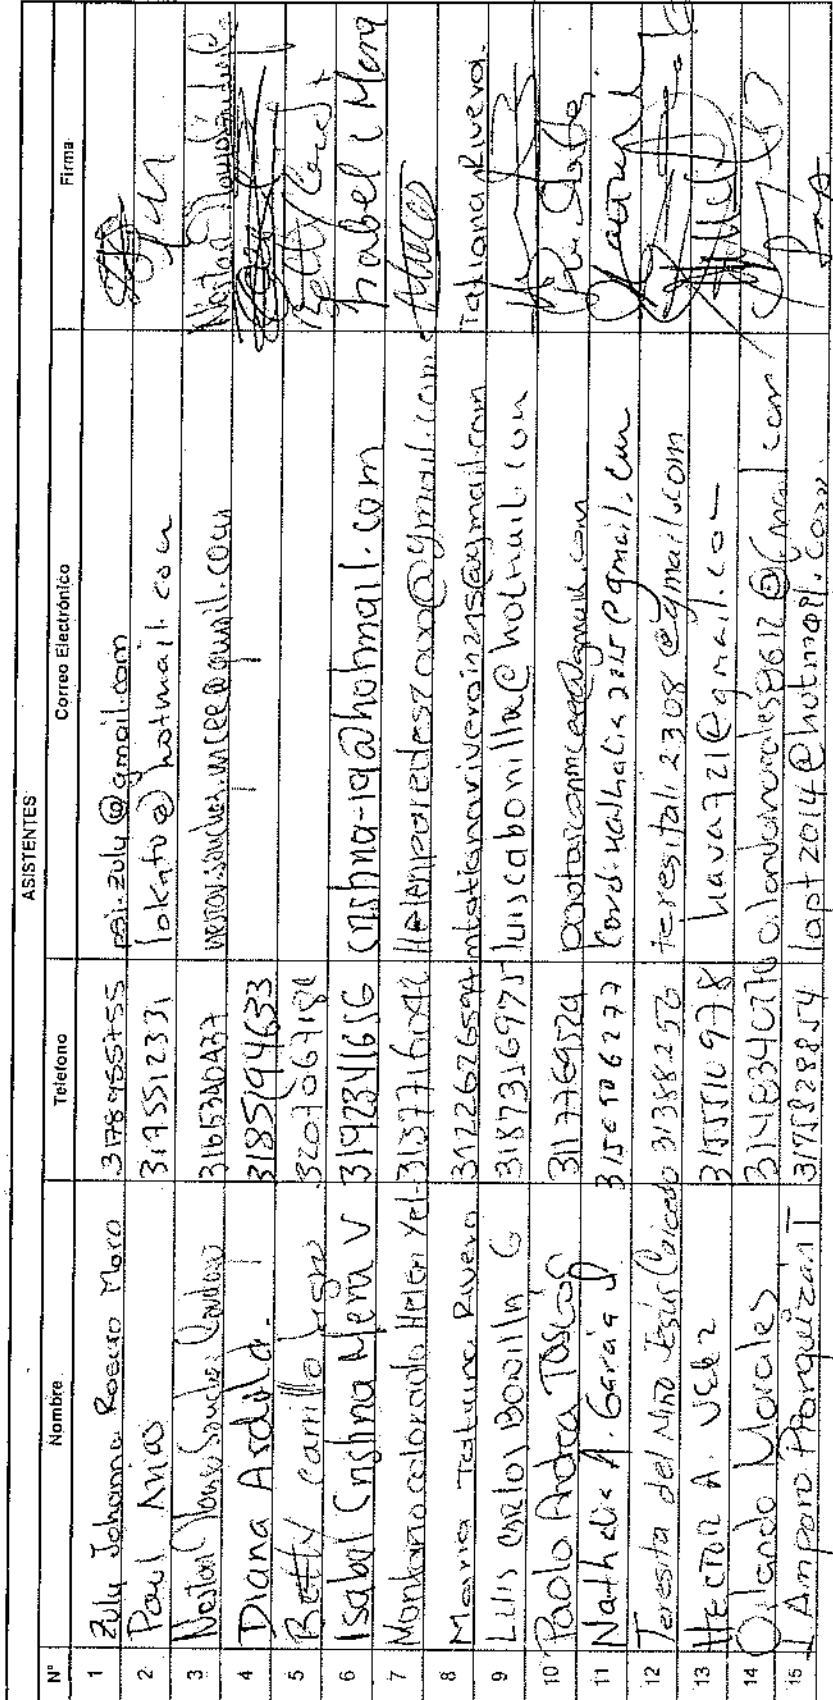 ASISTENTES
Nº Nombre Telefono Correo Electrónico Firma
1 Zuly Johanna Rosero Moro 3178955755 psi.zuly@gmail.com
2 Paul Arias 3175512331 lokato@hotmail.com
3 Nestor Alonso Sanchez 3165340437 nestor.sanchez.mcee@gmail.com
4 Diana Ardila. 3185194633
5 Betty Carrillo 3207067184 Betty
6 Isabel Cristina Mera V 3192341656 cristina-19@hotmail.com Isabel C Mera
7 Montaño colorado Helen Yel- Helenparedes2000@gmail.com
8 Maria Tatiana Rivera 3122626594 mtatianariverin215@gmail.com Tatiana Rivera.
9 Luis Carlos Bonilla G 3187316975 luiscabonilla@hotmail.com
10 Paola Andrea Tascón 3117769529
11 Nathalia A. Garcia 3156506277
12 Teresita del Niño Jesús Caicedo 31388256 teresitali2308@gmail.com
13 HECTOR A. Velez 3155510978 hava721@gmail.com
14 Orlando Morales 3148340276 orlandomorales8612@gmail.com
15 L Amparo Piarquizan T 3175828854 lapt2014@hotmail.com